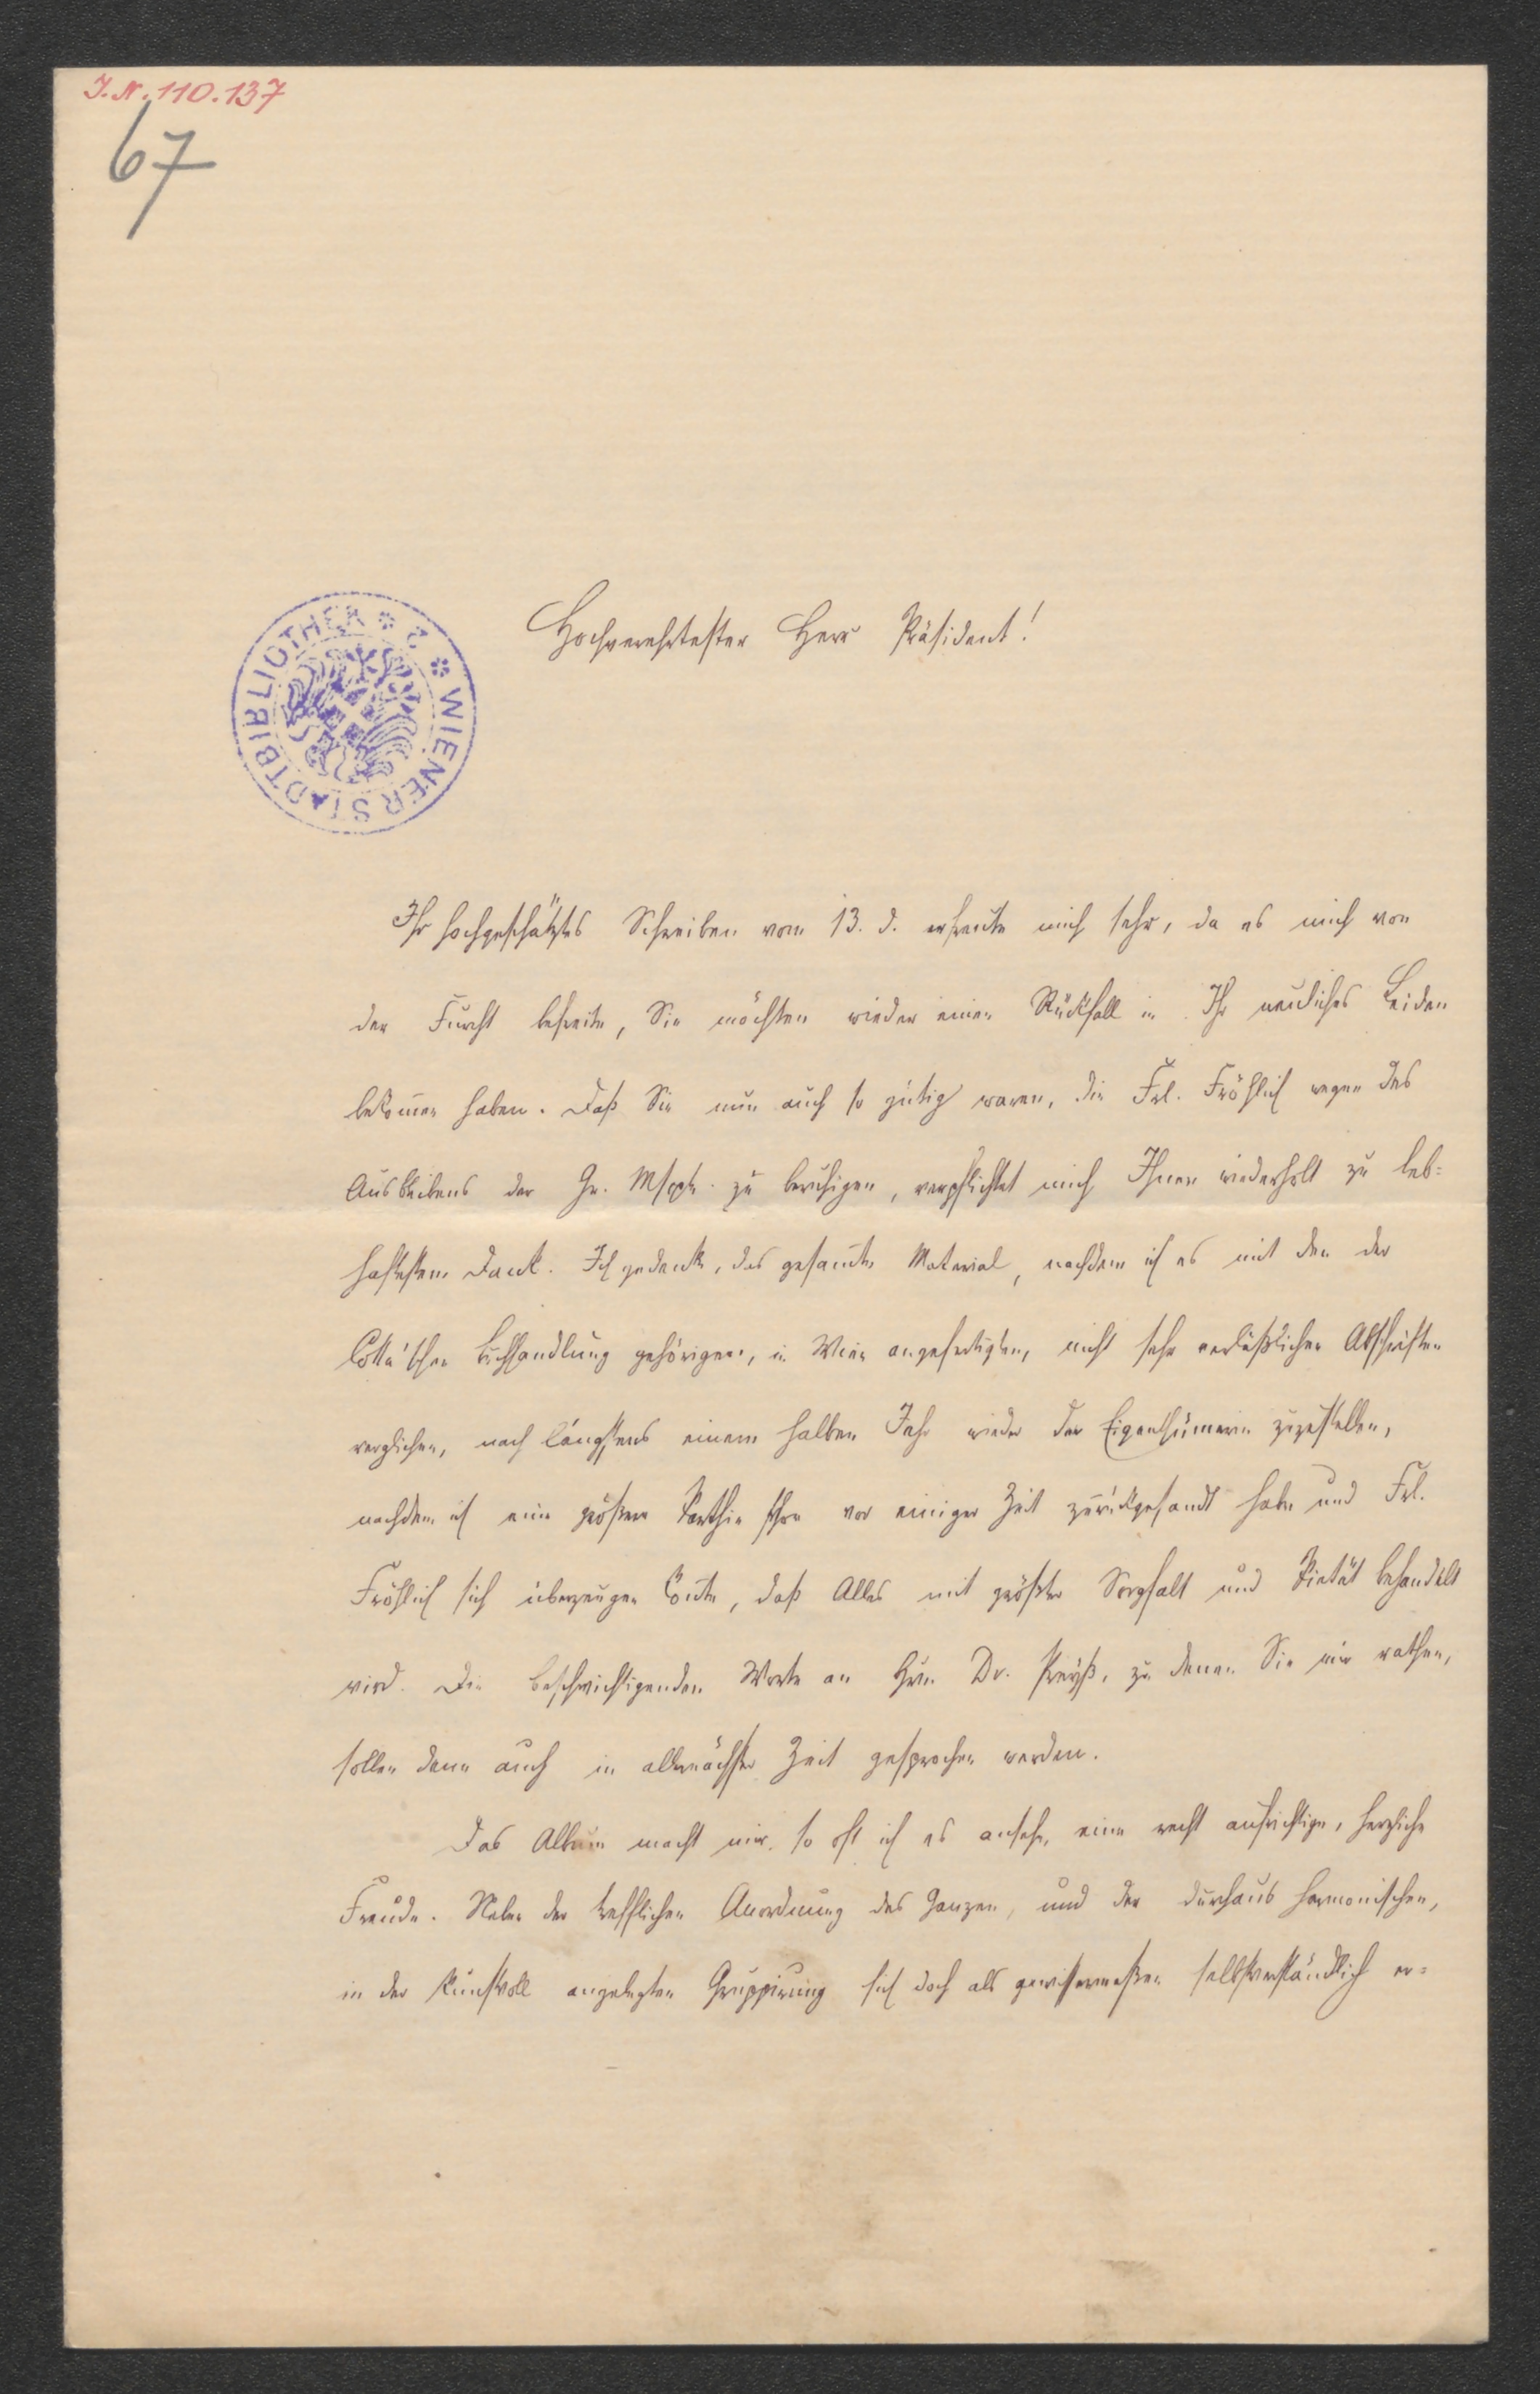 J.N. 110.137
67
WIENER STADTBIBLIOTHEK
Hochverehrtester Herr Präsident!
Ihr hochgeschätztes Schreiben vom 13. d. erfreute mich sehr, da es mich von
der Furcht befreite, Sie möchten wieder einen Rückfall in Ihr neuliches Leiden
bekom̅en haben. Daß Sie nun auch so gütig waren, die Frl. Fröhlich wegen des
Ausbleibens der Gr. Mscpte. zu beruhigen, verpflichtet mich Ihnen wiederholt zu leb=
haftestem Dank. Ich gedenke, das gesam̅te Material, nachdem ich es mit den der
Cotta'schen Buchhandlung gehörigen, in Wien angefertigten, nicht sehr verläßlichen Abschriften
verglichen, nach längstens einem halben Jahr wieder der Eigenthümerin zuzustellen,
nachdem ich eine größere Parthie schon vor einiger Zeit zurückgesandt habe und Frl.
Fröhlich sich überzeugen kon̅te, daß Alles mit größter Sorgfalt und Pietät behandelt
wird. Die beschwichtigenden Worte an Hrn. Dr. Preyß, zu denen Sie mir rathen,
sollen denn auch in allernächster Zeit gesprochen werden.
Das Album macht mir, so oft ich es ansehe, eine recht aufrichtige, herzliche
Freude. Neben der trefflichen Anordnung des Ganzen, und der durchaus harmonischen,
in der kunstvoll angelegten Gruppirung sich doch als gewissermaßen selbstverständlich er=